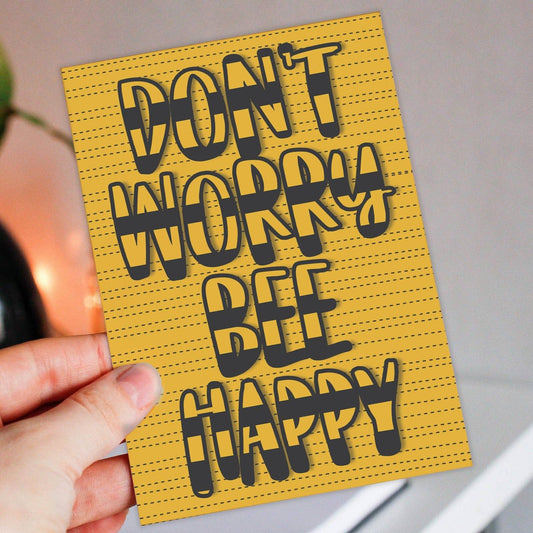 DON'T
WORRY
BEE
HAPPY